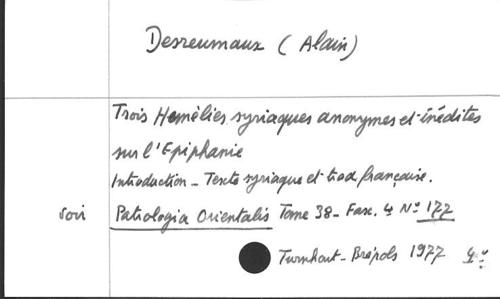 Desreumaux (Alain)
Trois Homélies syriaques anonymes et inédites
sur l'Epiphanie
Introduction - Texte syriaque et trad française.
voir Patrologia Orientalis Tome 38 - Fasc. 4 N° 177
Turnhout - Brépols 1977 4°